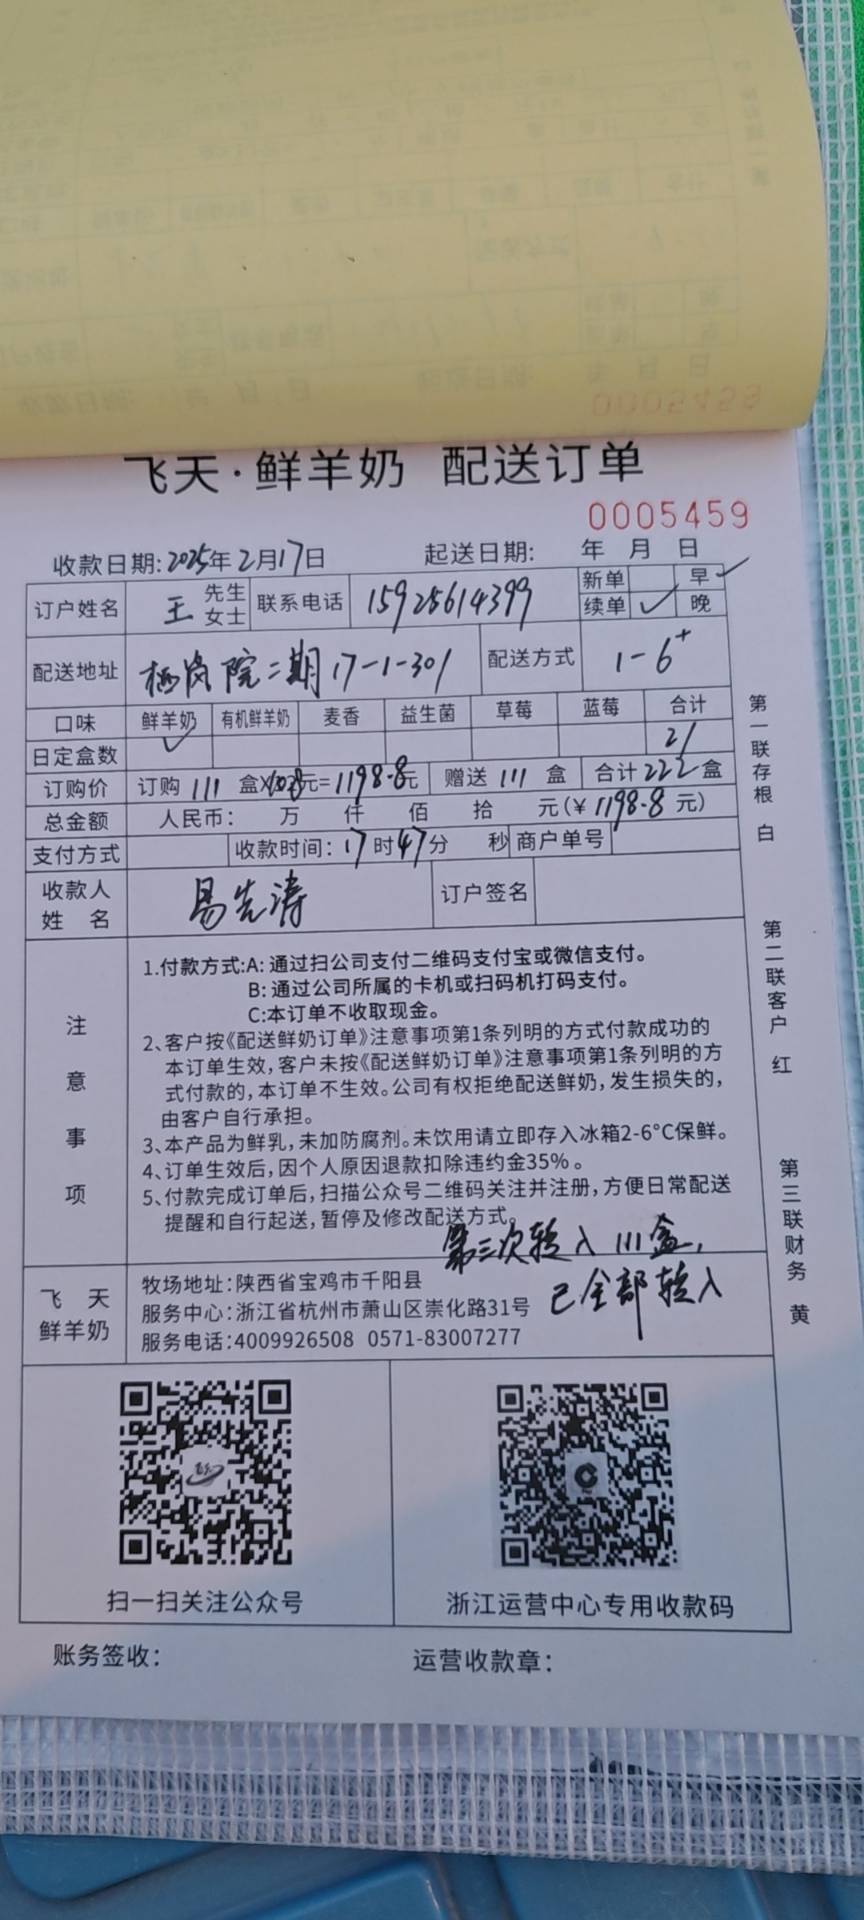 飞天·鲜羊奶 配送订单
0005459
收款日期:2025年2月17日 起送日期: 年 月 日
订户姓名 王 先生 女士 联系电话 15925614399 新单 早✓
续单✓ 晚
配送地址 院二期17-1-301 配送方式 1-6+
口味 鲜羊奶 有机鲜羊奶 麦香 益生菌 草莓 蓝莓 合计
日定盒数 ✓ 2/
订购价 订购 111 盒×10.8元=1198.8元 赠送 111 盒 合计222盒
总金额 人民币: 万 仟 佰 拾 元(¥1198.8元)
支付方式 收款时间:17时47分 秒 商户单号
收款人姓名 易先涛 订户签名
注意事项
1.付款方式:A:通过扫公司支付二维码支付宝或微信支付。
B:通过公司所属的卡机或扫码机打码支付。
C:本订单不收取现金。
2、客户按《配送鲜奶订单》注意事项第1条列明的方式付款成功的
本订单生效,客户未按《配送鲜奶订单》注意事项第1条列明的方
式付款的,本订单不生效。公司有权拒绝配送鲜奶,发生损失的,
由客户自行承担。
3、本产品为鲜乳,未加防腐剂。未饮用请立即存入冰箱2-6°C保鲜。
4、订单生效后,因个人原因退款扣除违约金35%。
5、付款完成订单后,扫描公众号二维码关注并注册,方便日常配送
提醒和自行起送,暂停及修改配送方式。
第三次转入111盒,
已全部转入
飞天鲜羊奶
牧场地址:陕西省宝鸡市千阳县
服务中心:浙江省杭州市萧山区崇化路31号
服务电话:4009926508 0571-83007277
扫一扫关注公众号 浙江运营中心专用收款码
账务签收: 运营收款章:
第一联存根 白
第二联客户 红
第三联财务 黄